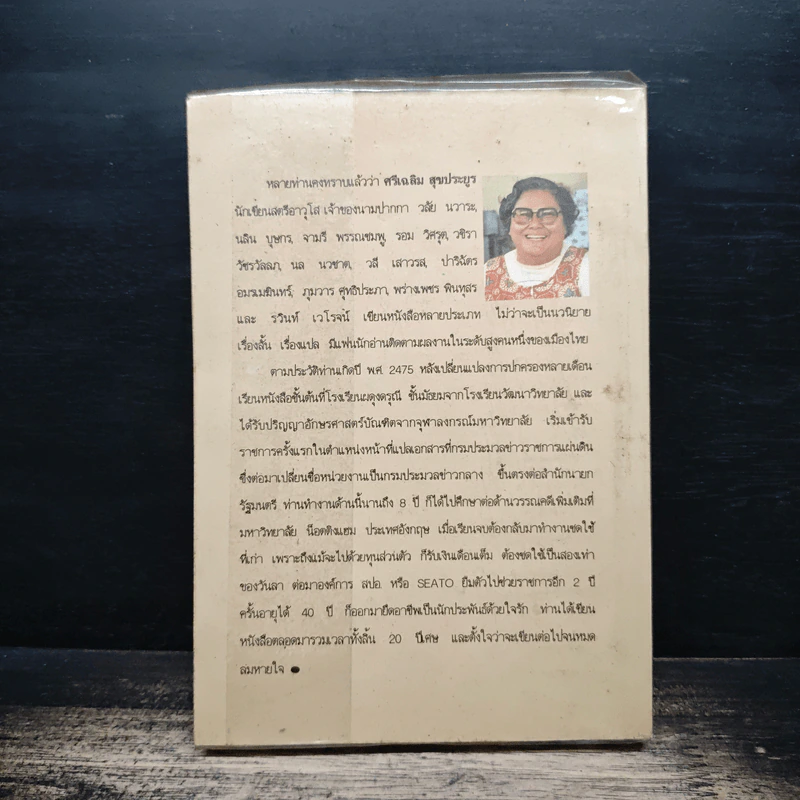 หลายท่านคงทราบแล้วว่า ศรีเฉลิม สุขประยูร
นักเขียนสตรีอาวุโส เจ้าของนามปากกา วลัย นวาระ,
นลิน บุษกร, จามรี พรรณชมพู, รอม วิศรุต, วชิรา
วัชรวัลลภ, นล นวชาต, วลี เสาวรส, ปาริฉัตร
อมรเมฆินทร์, ภุมวาร ศุทธิประภา, พร่างเพชร พินทุสร
และ รวินท์ เวโรจน์ เขียนหนังสือหลายประเภท ไม่ว่าจะเป็นนวนิยาย
เรื่องสั้น เรื่องแปล มีแฟนนักอ่านติดตามผลงานในระดับสูงคนหนึ่งของเมืองไทย
ตามประวัติท่านเกิดปี พ.ศ. 2475 หลังเปลี่ยนแปลงการปกครองหลายเดือน
เรียนหนังสือชั้นต้นที่โรงเรียนผดุงดรุณี ชั้นมัธยมจากโรงเรียนวัฒนาวิทยาลัย และ
ได้รับปริญญาอักษรศาสตร์บัณฑิตจากจุฬาลงกรณ์มหาวิทยาลัย เริ่มเข้ารับ
ราชการครั้งแรกในตำแหน่งหน้าที่แปลเอกสารที่กรมประมวลข่าวราชการแผ่นดิน
ซึ่งต่อมาเปลี่ยนชื่อหน่วยงานเป็นกรมประมวลข่าวกลาง ขึ้นตรงต่อสำนักนายก
รัฐมนตรี ท่านทำงานด้านนี้นานถึง 8 ปี ก็ได้ไปศึกษาต่อด้านวรรณคดีเพิ่มเติมที่
มหาวิทยาลัย น็อตติงแฮม ประเทศอังกฤษ เมื่อเรียนจบต้องกลับมาทำงานชดใช้
ที่เก่า เพราะถึงแม้จะไปด้วยทุนส่วนตัว ก็รับเงินเดือนเต็ม ต้องชดใช้เป็นสองเท่า
ของวันลา ต่อมาองค์การ สปอ. หรือ SEATO ยืมตัวไปช่วยราชการอีก 2 ปี
ครั้นอายุได้ 40 ปี ก็ออกมายึดอาชีพเป็นนักประพันธ์ด้วยใจรัก ท่านได้เขียน
หนังสือตลอดมารวมเวลาทั้งสิ้น 20 ปีเศษ และตั้งใจว่าจะเขียนต่อไปจนหมด
ลมหายใจ